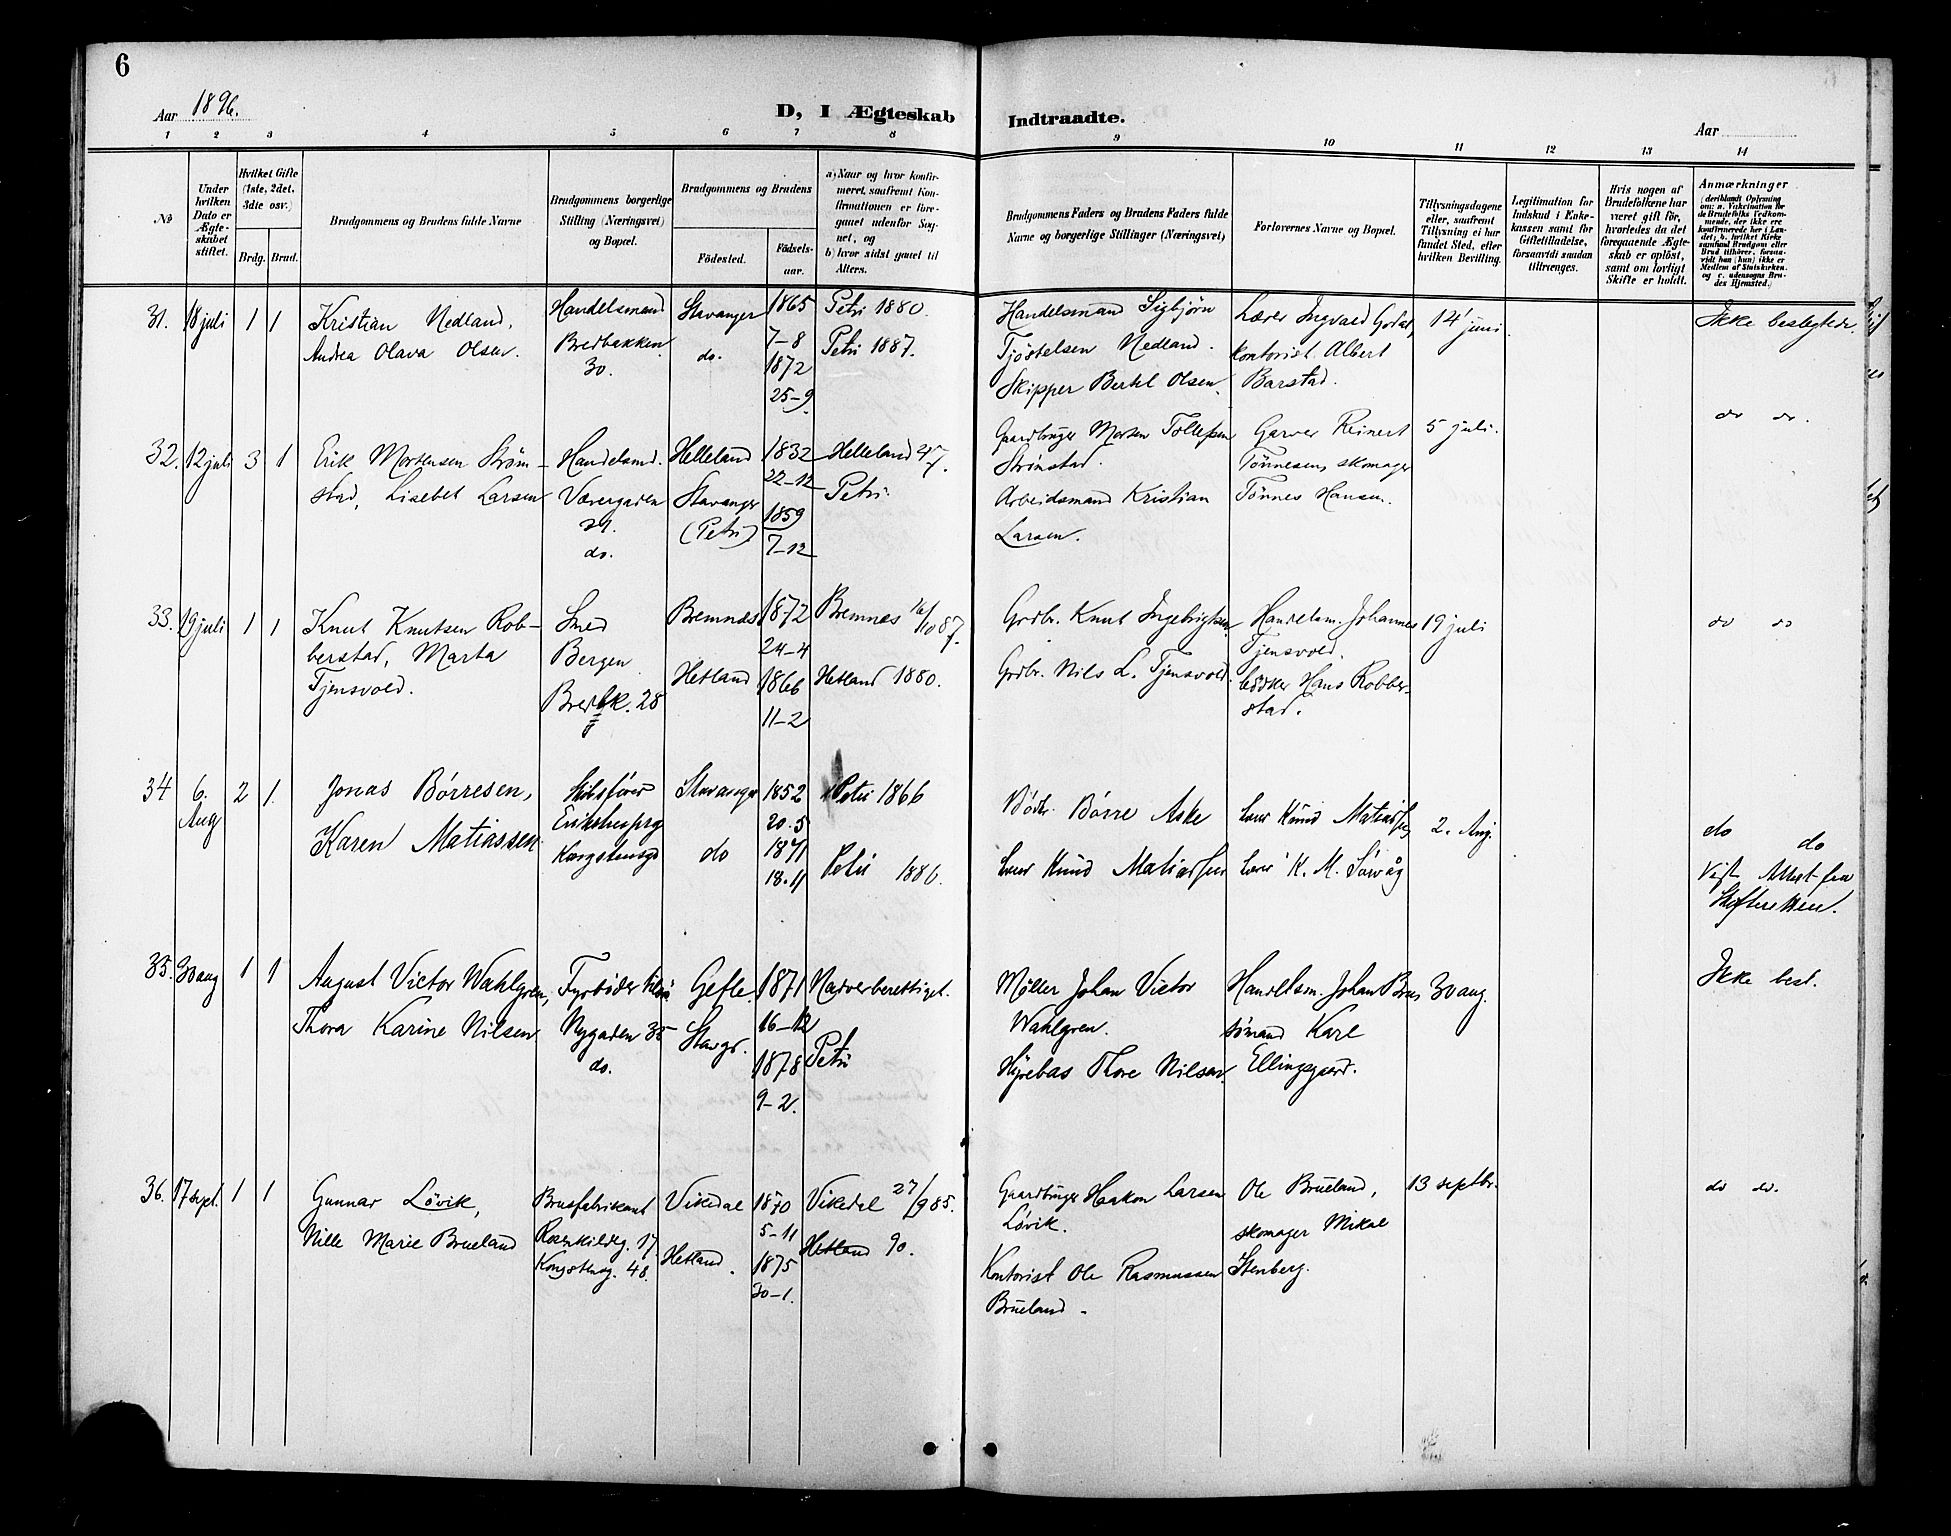 6
Aar 1896.
D, I Ægteskab Indtraadte.
Aar
1 2 3 4 5 6 7 8 9 10 11 12 13 14
No
Under hvilken Dato er Ægteskabet stiftet.
Hvilket Gifte (1ste, 2det, 3die osv.)
Brdg. Brud.
Brudgommens og Brudens fulde Navne
Brudgommens borgerlige Stilling (Næringsvei) og Bopæl.
Brudgommens og Brudens
Födested.
Födselsaar.
a) Naar og hvor konfirmeret, saafremt Konfirmationen er foregaaet udenfor Sognet, og
b) hvor sidst gaaet til Alters.
Brudgommens Faders og Brudens Faders fulde Navne og borgerlige Stillinger (Næringsvei)
Forlovernes Navne og Bopæl.
Tillysningsdagene eller, saafremt Tillysning ei har fundet Sted, efter hvilken Bevilling.
Legitimation for Indskud i Enkekassen samt for Giftetilladelse, forsaavidt saadan tiltrenges.
Hvis nogen af Brudefolkene har været gift før, hvorledes da det foregaaende Ægteskab er opløst, samt om lovligt Skifte er holdt.
Anmærkninger
31. 18 juli 1 1
Kristian Nedland,
Andrea Olava Olsen.
Handelsmand
Bredbakken
30.
Stavanger
do.
1865
7-8
1872
25-9
Petri 1880.
Petri 1887.
Handelsmand Sigbjørn
Tjöstelsen Nedland.
Skipper Bertel Olsen.
Lærer Ingvald
Kontorist Albert
Barstad.
14 juni
Ikke beslegtede.
32. 12 juli 3 1
Erik Mortensen Strøm-
stad, Lisebet Larsen
Handelsmd.
Værergaden
29.
do.
Helleland
Stavanger
(Petri)
1832
22-12
1859
7-12
Helleland 47.
Petri
Gaardbruger Morten Tollefsen
Strömstad.
Arbeidsmand Kristian
Larsen.
Garver Reinert
Tönnesen, skomager
Tönnes Hansen.
5 juli.
do do.
33. 19 juli 1 1
Knut Knutsen Rob-
berstad, Marta
Tjensvold.
Smed
Bergen
Bredbk. 28
Bremnes
Hetland
1872
24-4
1866
11-2
Bremnes 16/10 87.
Hetland 1880.
Grdbr. Knut Ingebrigtsen
Grdbr. Nils L. Tjensvold.
Handelsm. Johannes
Tjensvold.
bödker Hans Robber-
stad.
19 juli
do do
34 6. Aug 2 1.
Jonas Börresen,
Karen Matiassen
Skibsförer
Stavanger
do
1852
20.5
1871
18.11
Petri 1866
Petri 1886.
Börre Aske
Knud Matiassen
Knud Matiassen
K. M. Sörvåg
2. Aug.
do do
Vist Attest fra
Skifteretten.
35. 30 aug 1 1
August Victor Wahlgren,
Thora Karine Nilsen
Fyrböder
Nygaden 35
do.
Gefle.
Stavgr.
1871
16-12
1878
9-2.
Nadverberettiget.
Petri
Møller Johan Victor
Wahlgren.
Hyrebas Thore Nilsen.
Handelsm. Johan Brus
sömand Karl
Ellingsgaard.
30 aug.
Ikke besl.
36. 17 sept. 1 1
Gunnar Lövik,
Nille Marie Brueland
Brusfabrikant
Rosenkildeg. 17.
Kongsteng. 48.
Vikedal
Hetland.
1870
5-11
1875
30-1.
Vikedal 27/9 85.
Hetland 90.
Gaardbruger Haakon Larsen
Lövik.
Kontorist Ole Rasmussen
Brueland.
Ole Brueland,
skomager Mikal
Stenberg.
13 septbr.
do do.